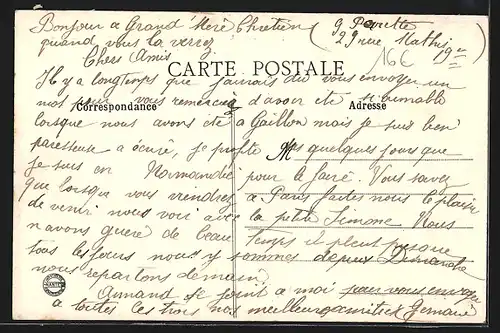 Bonjour a Grand Mère Chretien
quand vous la verrez
29 rue Mathis
16E
Chers Amis
CARTE POSTALE
Il y a longtemps que j'aurais du vous envoyer un
mot pour vous remercier d'avoir été si aimable
Correspondance
Adresse
lorsque nous avons été a Gaillon mais je suis bien
paresseuse a écrire, je profite Mes quelques jours que
je suis en Normandie pour le faire. Vous savez
que lorsque vous viendrez a Paris faites nous le plaisir
de venir nous voir avec la petite Simone Nous
n'avons guère de beau temps il pleut presque
tous les jours nous y sommes depuis Dimanche
nous repartons demain
Armand se joint a moi pour vous envoyer
a toutes les trois nos meilleures amitiés Germaine